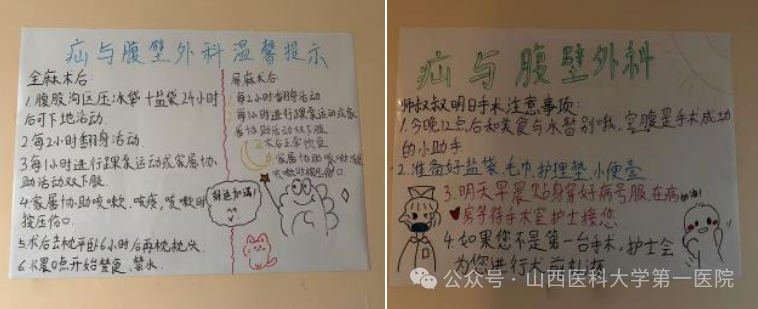 疝与腹壁外科温馨提示
全麻术后:
1.腹股沟区压冰袋+盐袋24小时
后可下地活动.
2.每2小时翻身活动.
3.每1小时进行踝泵运动或家属协
助活动双下肢
4.家属协助咳嗽、咳痰,咳嗽时
按压伤口.
5.术后去枕平卧6小时后再枕枕头.
6.术晨0点开始禁食、禁水.
局麻术后
1.每2小时翻身活动
2.每1小时进行踝泵运动或家
属协助活动双下肢
3.术后正常饮食
家属协助咳嗽
咳嗽时按压伤口
好运加满!
疝与腹壁外科
师叔叔明日手术注意事项:
1.今晚12点后和美食与水暂别哦,空腹是手术成功
的小助手.
2.准备好盐袋、毛巾、护理垫、小便壶
3.明天早晨贴身穿好病号服在病
房等待手术室护士接您
加油!
4.如果您不是第一台手术,护士会
为您进行术前补液
公众号·山西医科大学第一医院